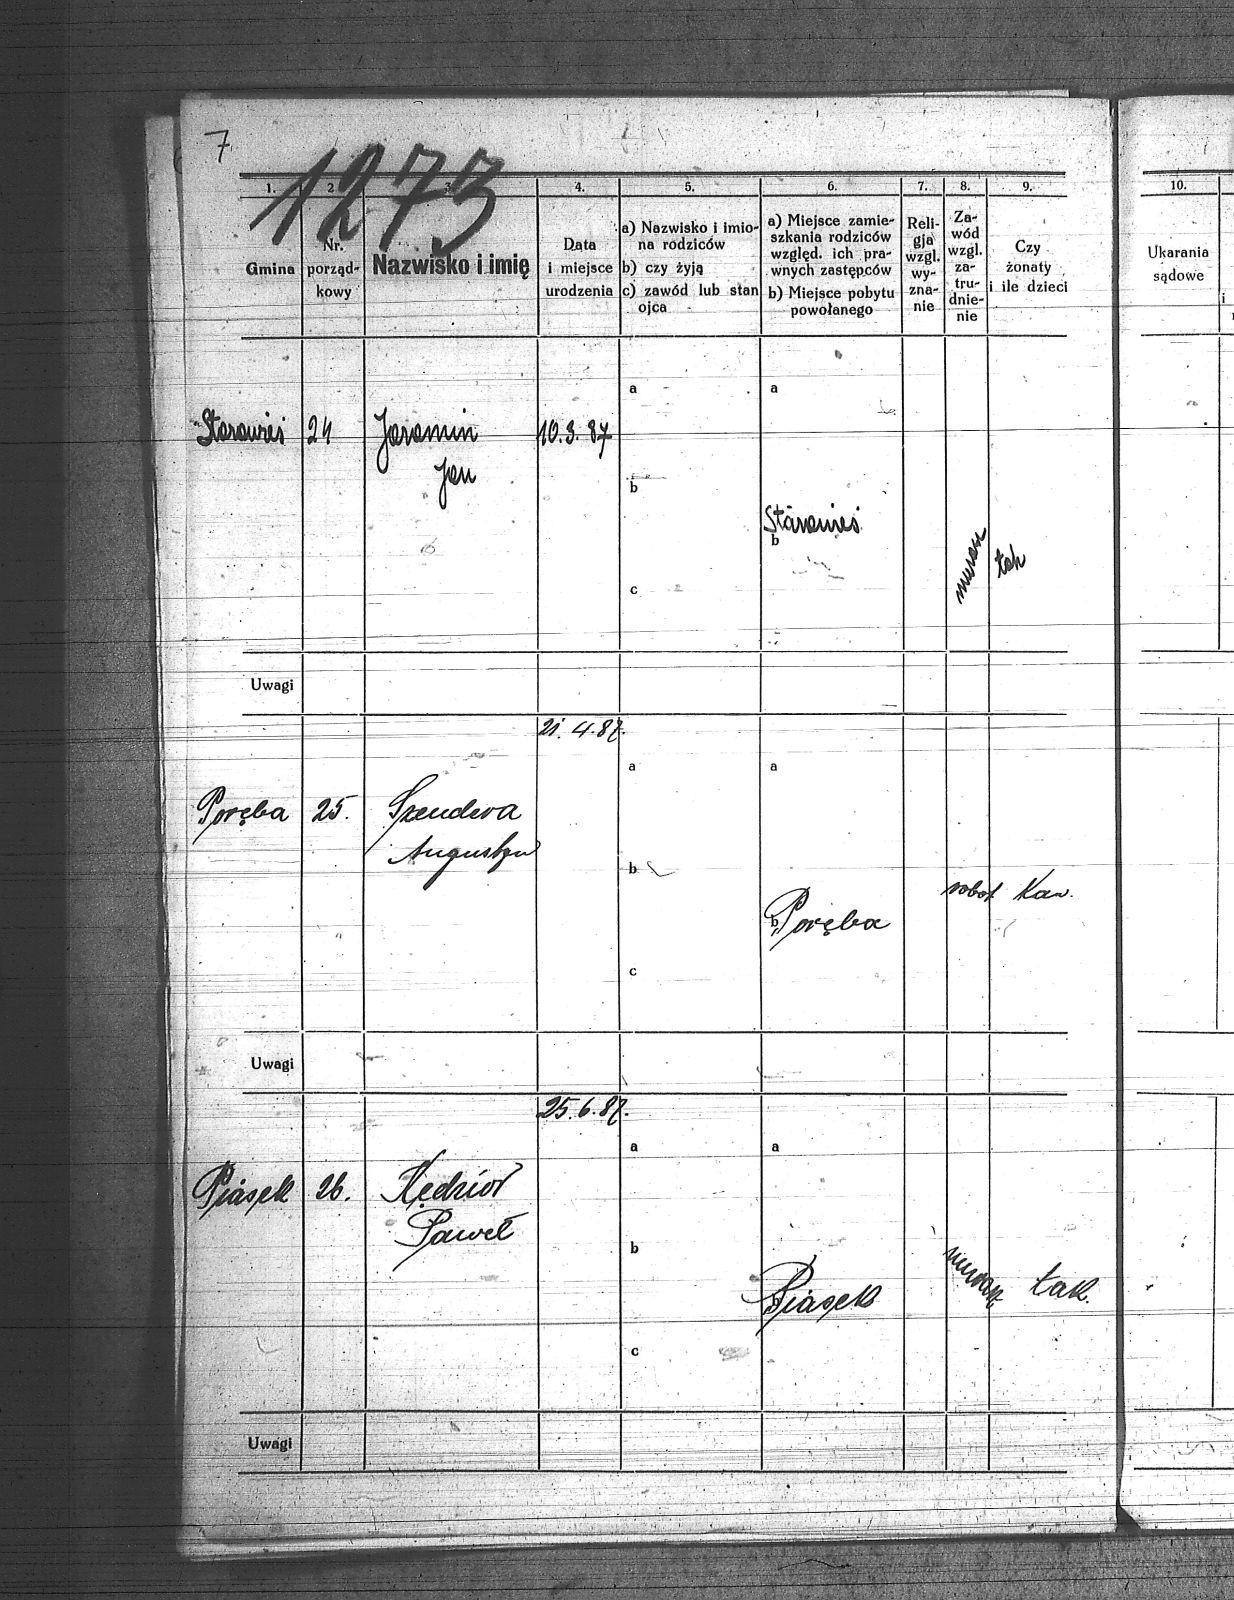 7
1273
1. 2 3. 4. 5. 6. 7. 8. 9. 10.
Gmina
Nr.
porząd-
kowy
Nazwisko i imię
Data
i miejsce
urodzenia
a) Nazwisko i imio-
na rodziców
b) czy żyją
c) zawód lub stan
ojca
a) Miejsce zamie-
szkania rodziców
względ. ich pra-
wnych zastępców
b) Miejsce pobytu
powołanego
Reli-
gja
wzgl.
wy-
zna-
nie
Za-
wód
wzgl.
za-
tru-
dnie-
nie
Czy
żonaty
i ile dzieci
Ukarania
sądowe
a a
Starawieś 24 Jaromin 10.3.87
Jan
b
Starawieś
b
murarz tak
c
Uwagi
21.4.87.
a a
Poręba 25. Szendera
Augustyn
b
robot Kaw.
b Poręba
c
Uwagi
25.6.87.
a a
Piasek 26. Kędzior
Paweł
b
murarz tak.
b Piasek
c
Uwagi